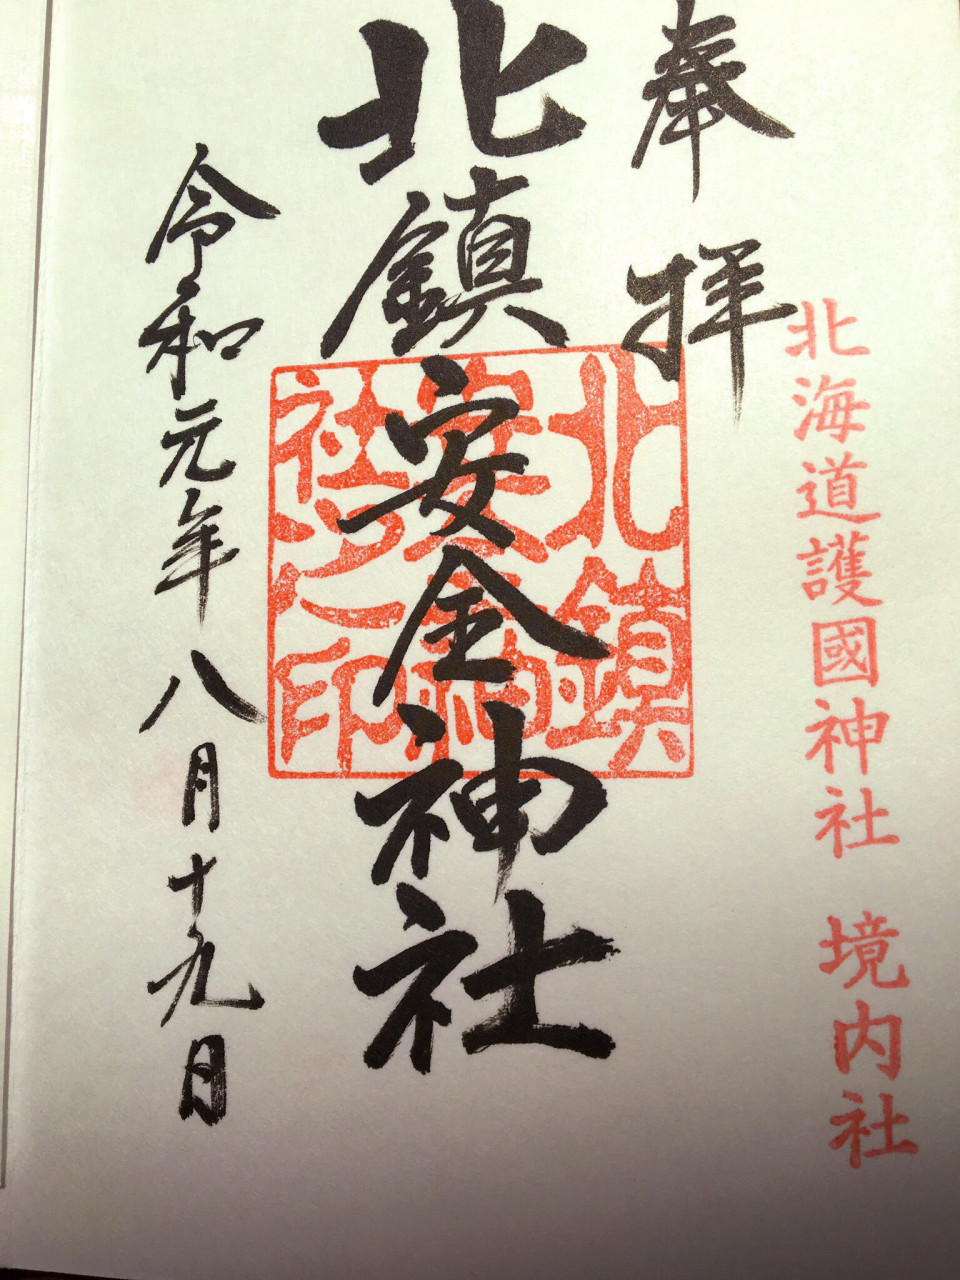 北海道護國神社 境内社
奉拝
北鎮安全神社
北鎮
安全神
社之印
令和元年八月十九日